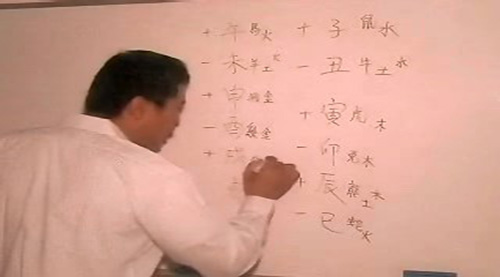 + 子 鼠水
− 丑 牛土水
+ 寅 虎木
− 卯 兔木
+ 辰 龍土木
− 巳 蛇火
+ 午 馬火
− 未 羊土火
+ 申 猴金
− 酉 雞金
+ 戌